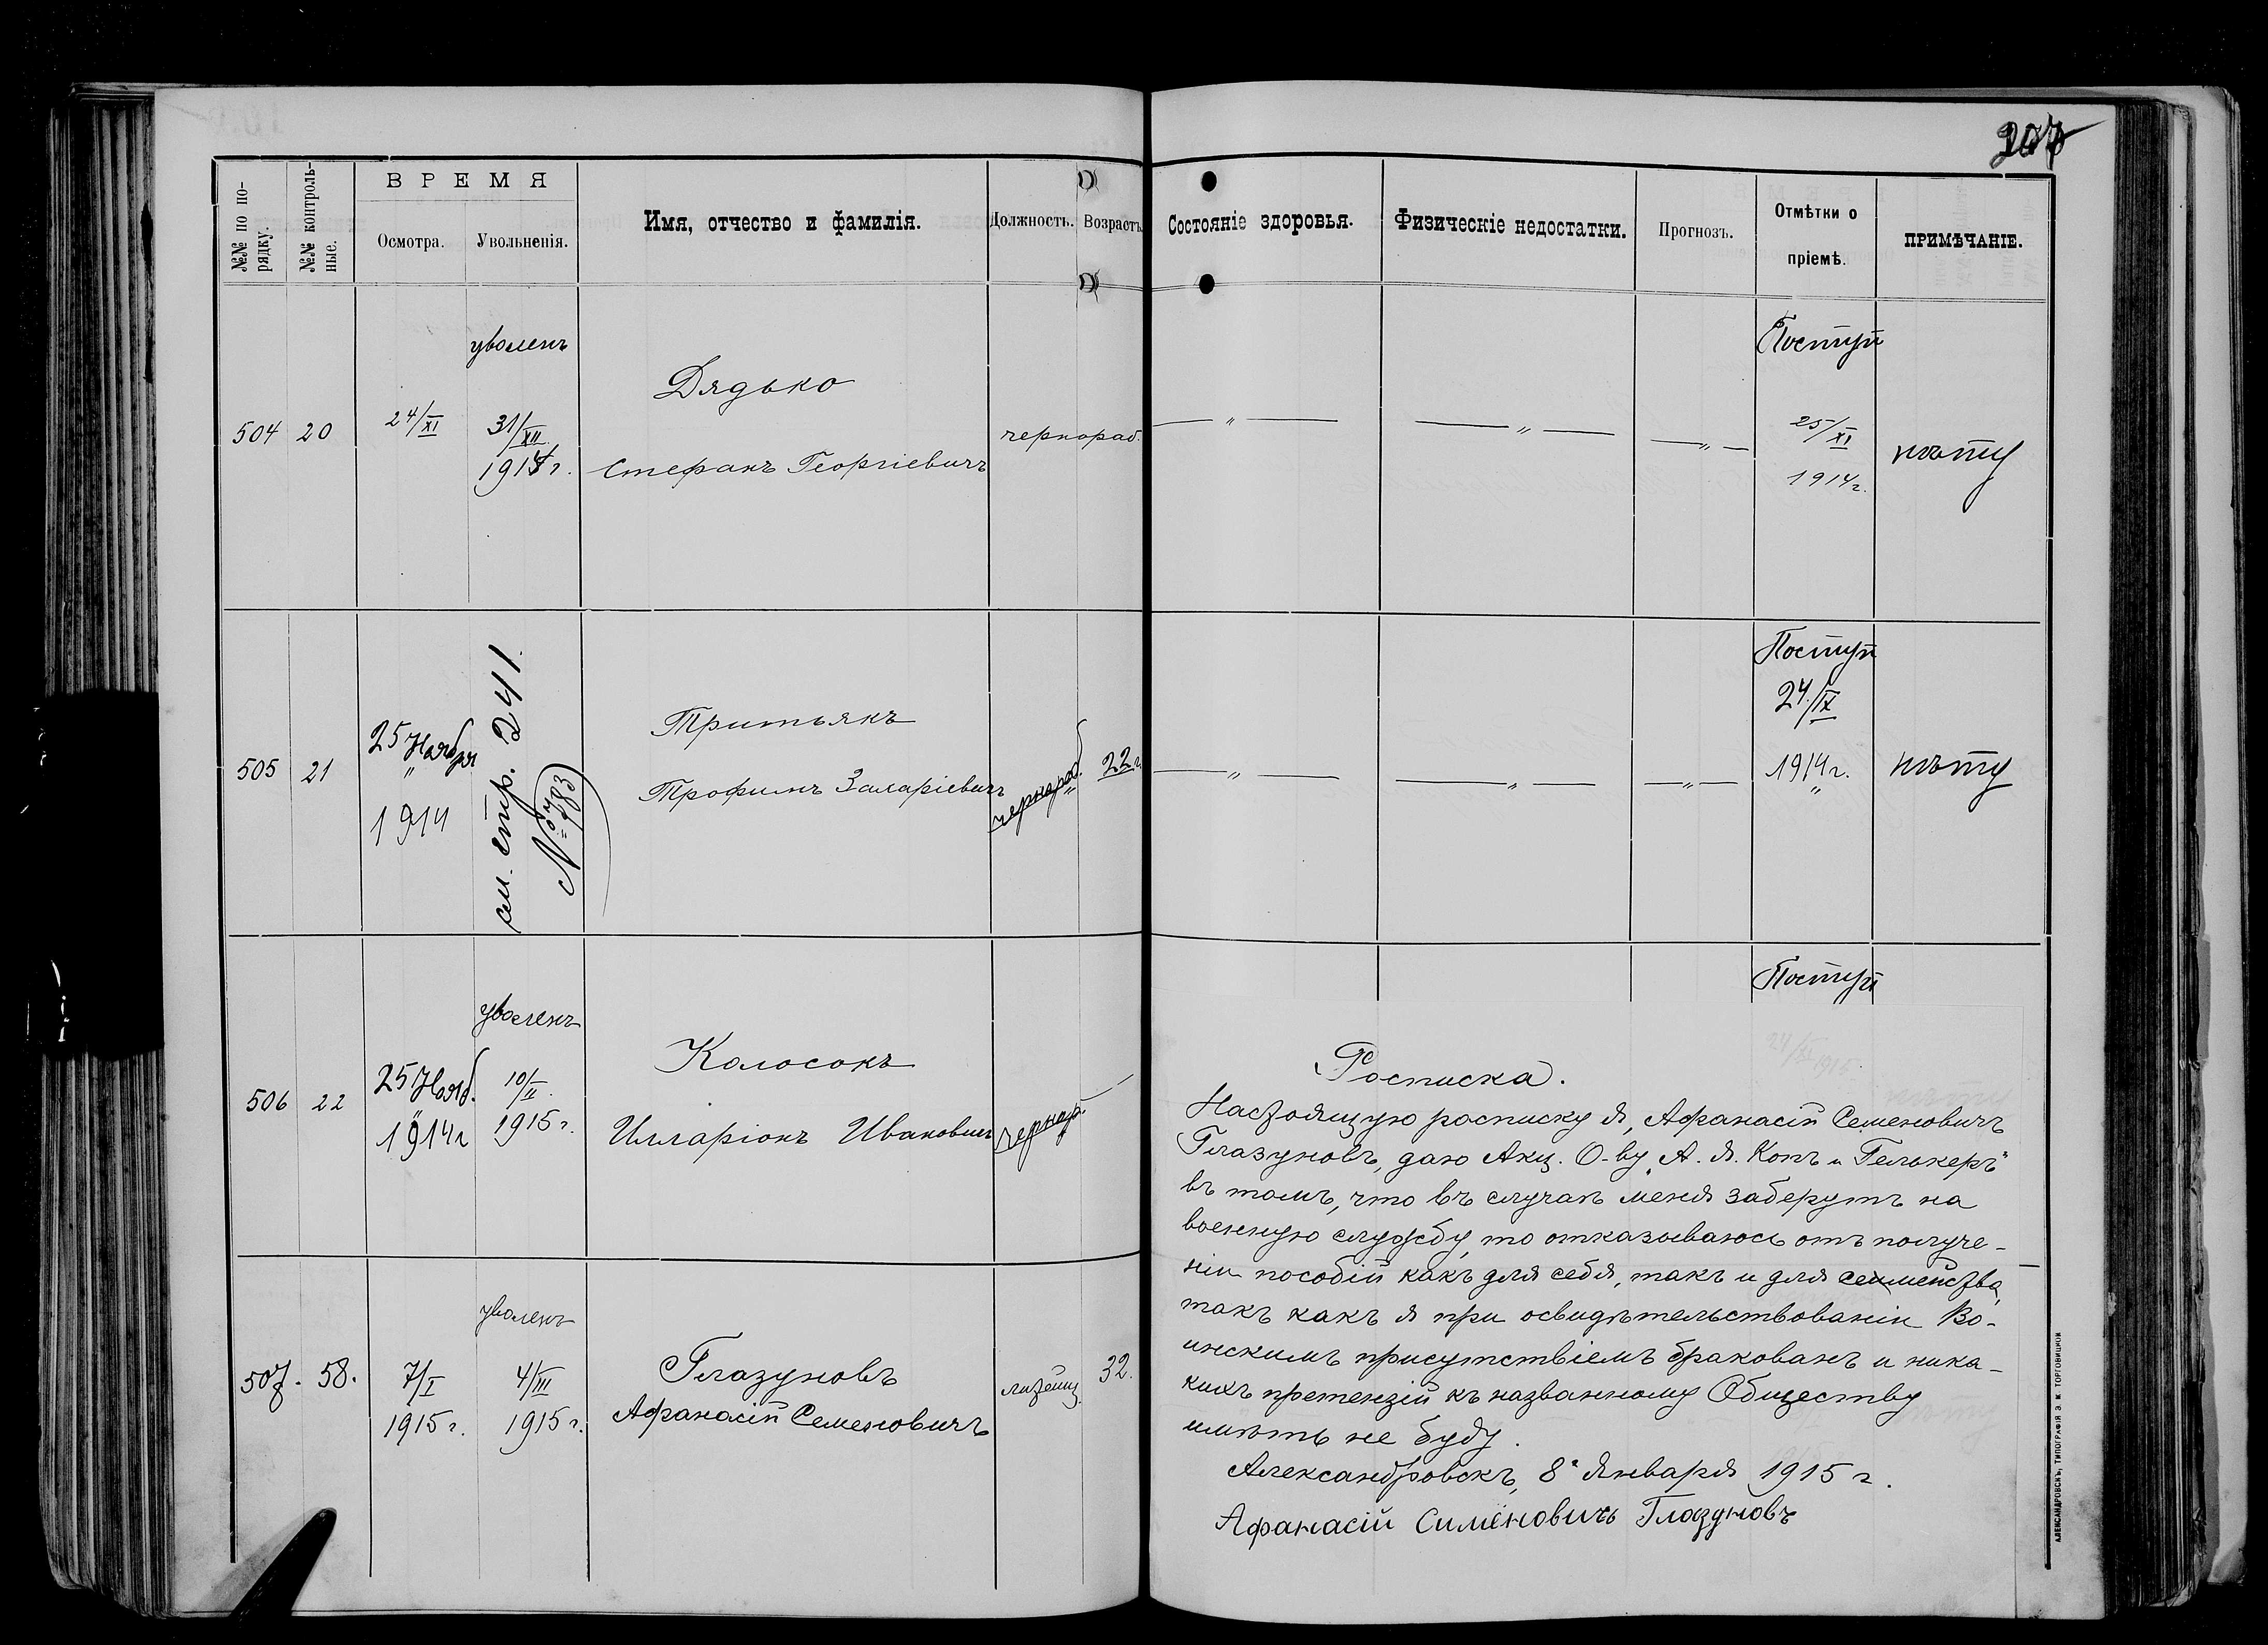 207
№№ по по-
рядку.
№№ контроль-
ные.
ВРЕМЯ
Осмотра.
Увольненія.
Имя, отчество и фамилія.
Должность.
Возрастъ.
Состояніе здоровья.
Физическіе недостатки.
Прогнозъ.
Отмѣтки о
пріемѣ.
ПРИМѢЧАНІЕ.
504 20 24/XI
уволенъ
31/XII
1914 г.
Дядько
Стефанъ Георгіевичъ
чернораб.
— " — — " — — " —
Поступ
25/XI
1914 г.
нѣту
505 21
25 Ноября
1914
см. стр. 241.
№ 583
Тритьякъ
Трофимъ Захаріевичъ
чернораб.
22 г.
— " — — " — — " —
Поступ
24/IX
1914 г.
нѣту
506 22
25 Нояб.
1914 г
уволенъ
10/II
1915 г.
Колосокъ
Илларіонъ Ивановичъ
чернораб.
Поступ
507. 58.
7/I
1915 г.
уволенъ
4/III
1915 г.
Глазуновъ
Афанасій Семеновичъ
литейщ.
32.
Росписка.
Настоящую росписку я, Афанасій Семеновичъ
Глазуновъ, даю Акц. О-ву „А. Я. Копъ и Гелькеръ"
въ томъ, что въ случаѣ меня заберутъ на
военную службу, то отказываюсь отъ получе-
ніи пособій какъ для себя, такъ и для семейства,
такъ какъ я при освидѣтельствованіи Во-
инскимъ присутствіемъ бракованъ и ника-
кихъ претензій къ названному Обществу
имѣть не буду.
Александровскъ, 8 Января 1915 г.
Афанасій Симёновичъ Глазуновъ
АЛЕКСАНДРОВСКЪ, ТИПОГРАФІЯ Э. М. ТОРГОВИЦКОЙ